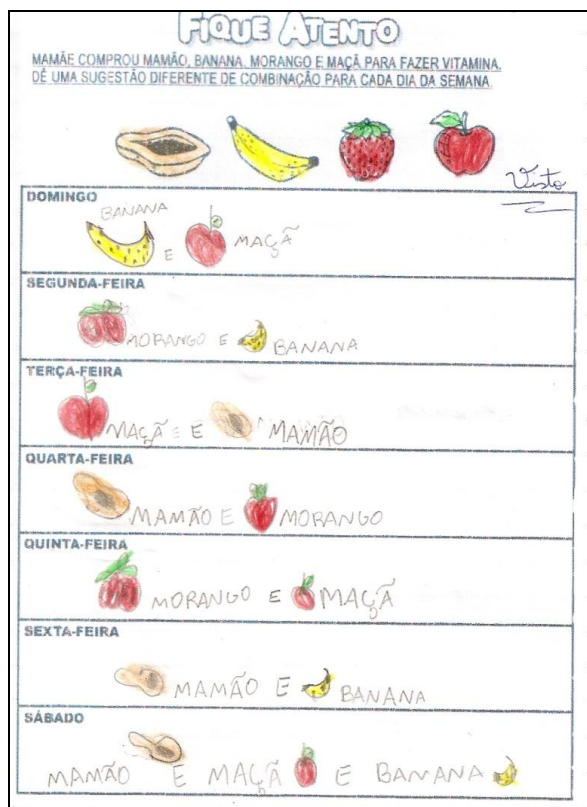 FIQUE ATENTO
MAMÃE COMPROU MAMÃO, BANANA, MORANGO E MAÇÃ PARA FAZER VITAMINA.
DÊ UMA SUGESTÃO DIFERENTE DE COMBINAÇÃO PARA CADA DIA DA SEMANA.
Visto
DOMINGO
BANANA
E MAÇÃ
SEGUNDA-FEIRA
MORANGO E BANANA
TERÇA-FEIRA
MAÇÃ E MAMÃO
QUARTA-FEIRA
MAMÃO E MORANGO
QUINTA-FEIRA
MORANGO E MAÇÃ
SEXTA-FEIRA
MAMÃO E BANANA
SÁBADO
MAMÃO E MAÇÃ E BANANA